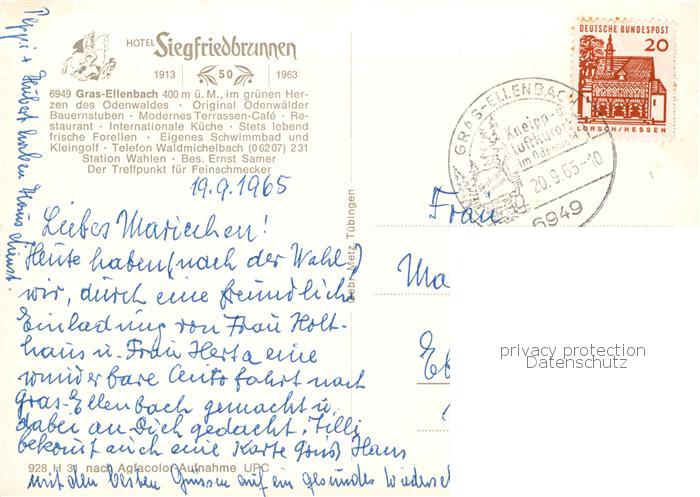 HOTEL Siegfriedbrunnen
1913 50 1963
6949 Gras-Ellenbach 400 m ü. M., im grünen Her-
zen des Odenwaldes · Original Odenwälder
Bauernstuben · Modernes Terrassen-Café · Re-
staurant · Internationale Küche · Stets lebend
frische Forellen · Eigenes Schwimmbad und
Kleingolf · Telefon Waldmichelbach (06207) 231
Station Wahlen · Bes. Ernst Samer
Der Treffpunkt für Feinschmecker
19.9.1965
Liebes Mariechen!
Heute haben (nach der Wahl)
wir, durch eine freundliche
Einladung von Frau Holt-
haus u. Frau Herta eine
wunderbare Autofahrt nach
Gras-Ellenbach gemacht u.
dabei an Dich gedacht. Tilli
bekommt auch eine Karte Gruß Hans
mit den besten Grüssen auf ein gesundes Wiederse
Peppi + Hubert haben Haus
dienst.
928 H 31 nach Agfacolor-Aufnahme UPC
Gebr. Metz Tübingen
DEUTSCHE BUNDESPOST
20
LORSCH/HESSEN
GRAS-ELLENBACH
Kneipp-
Luftkurort
im Odenwald
20.9.65-10
6949
Frau
Ma
Eb
privacy protection
Datenschutz